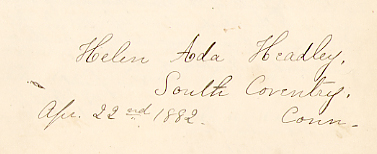 Helen Ada Headley.
South Coventry.
Apr. 22nd 1882. Conn.